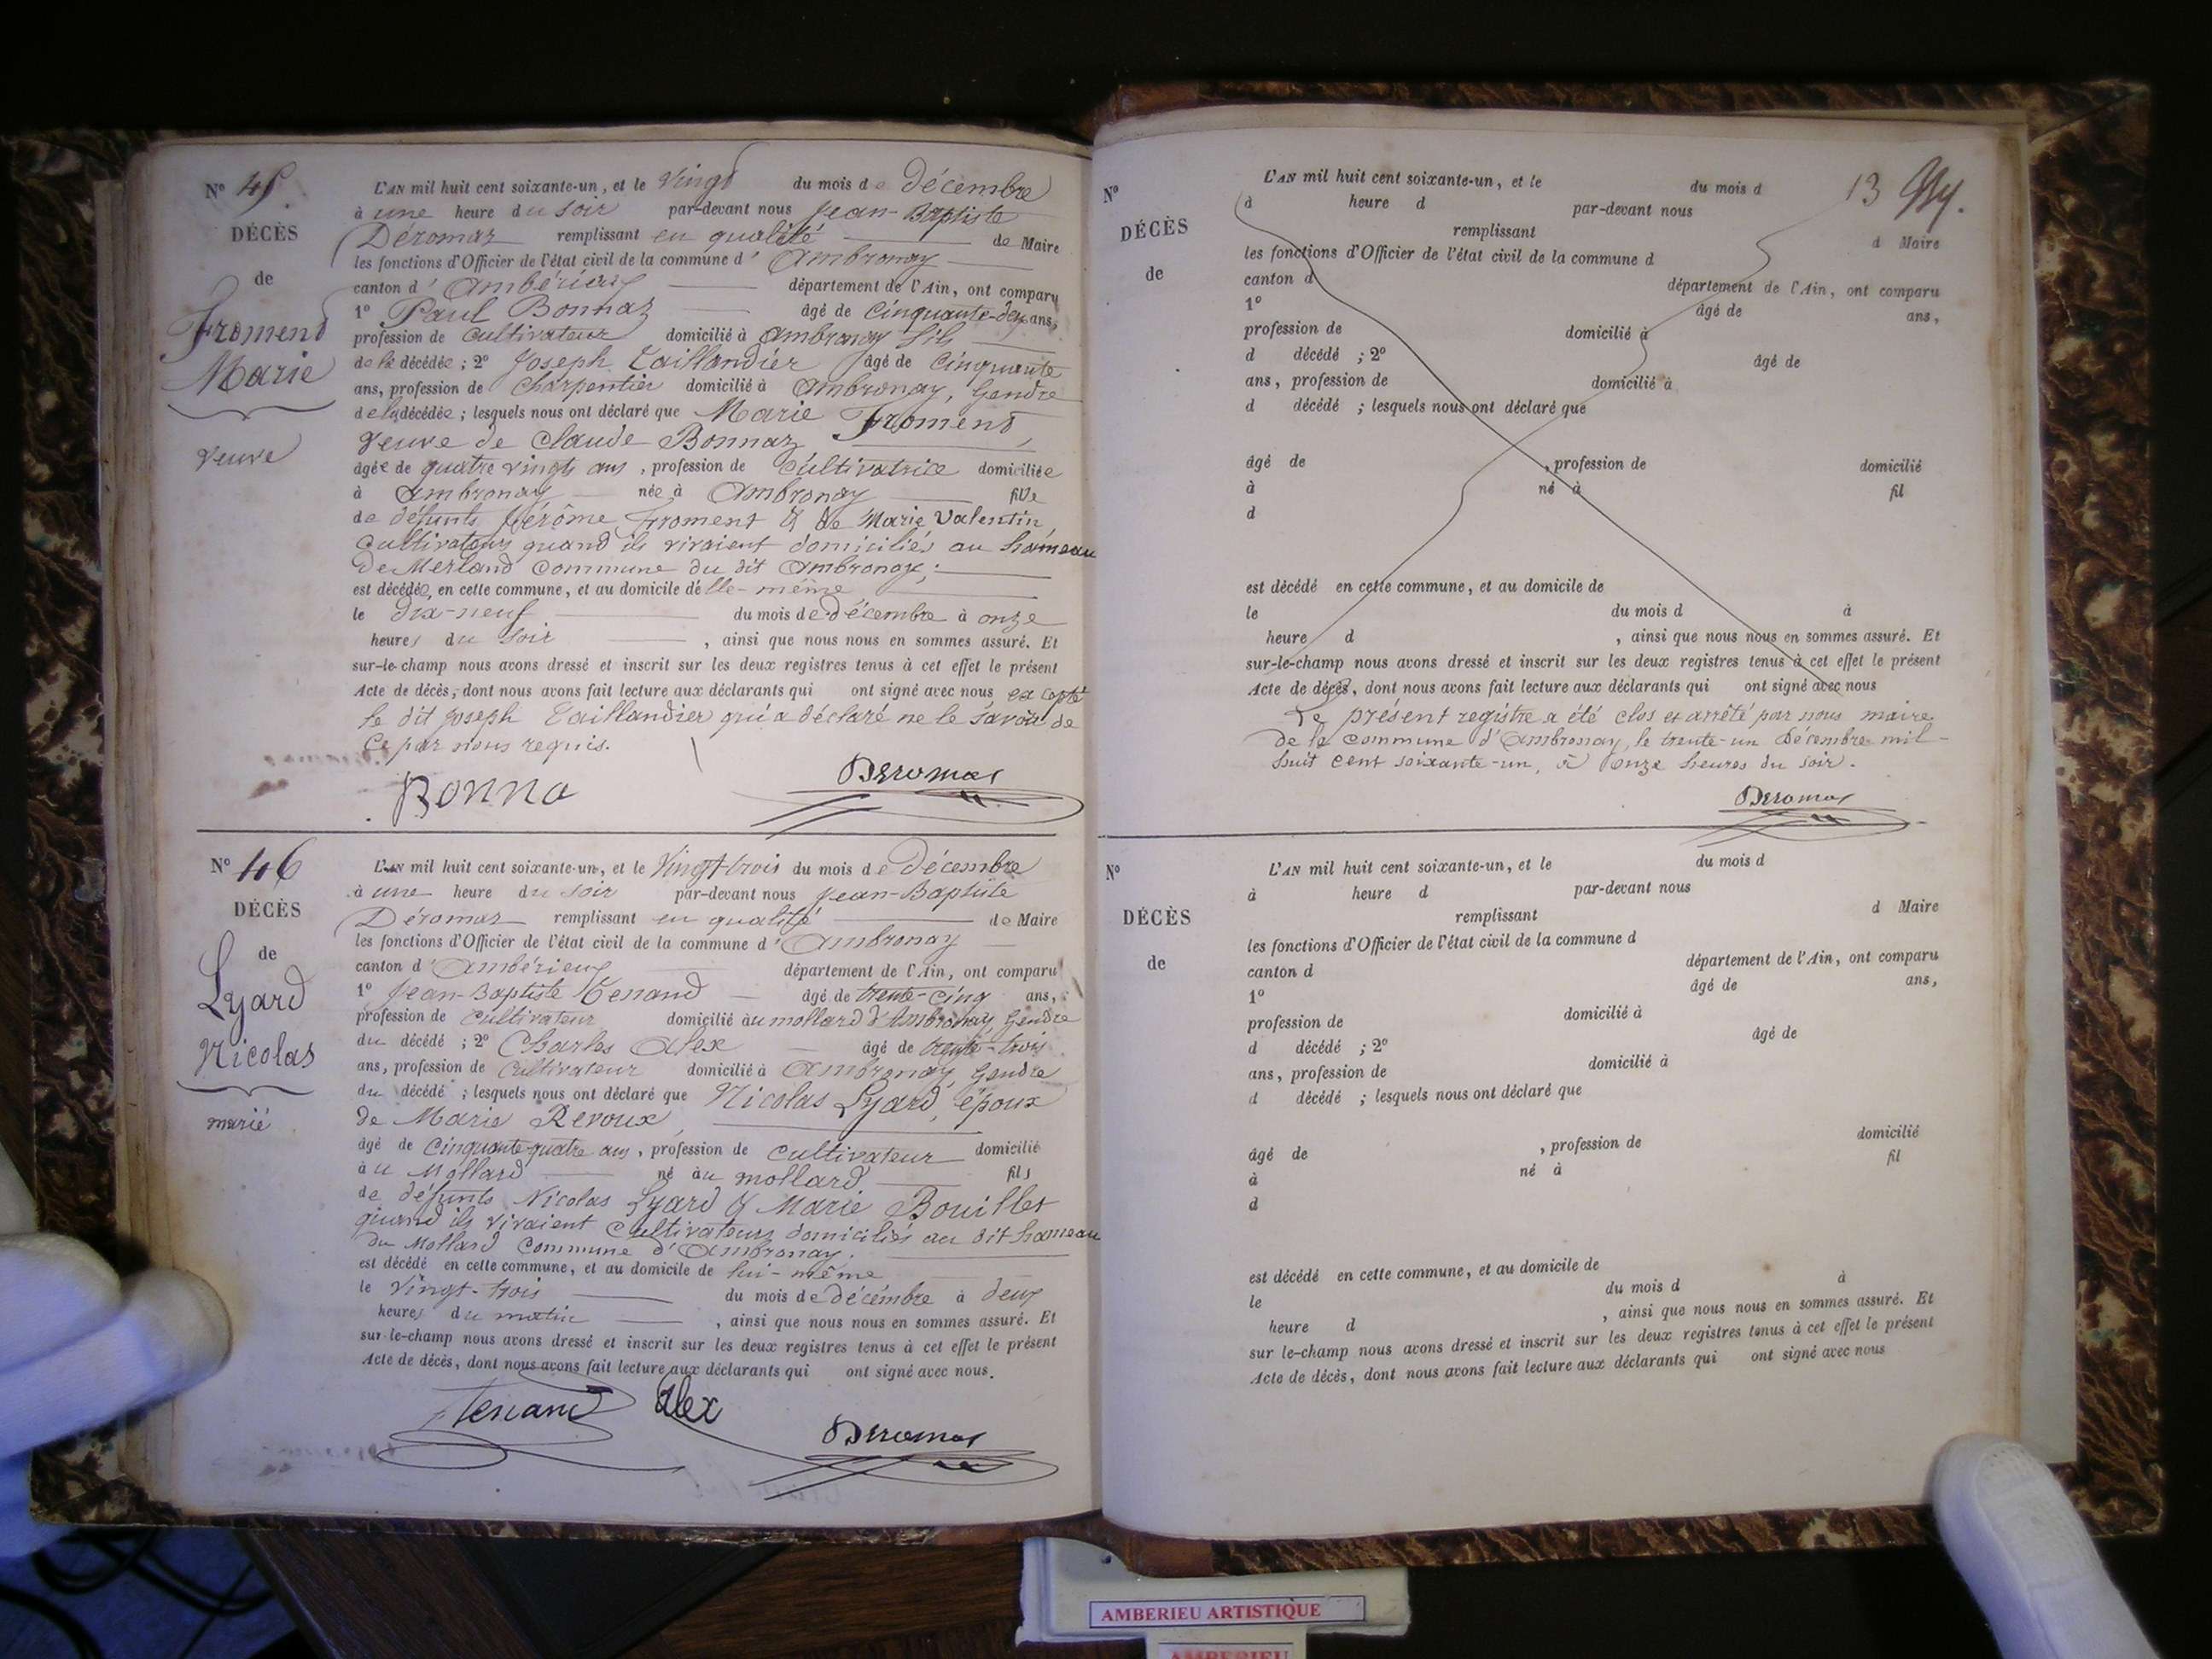 N° 45.
DÉCÈS
de
Froment
Marie
veuve
L'AN mil huit cent soixante-un, et le Vingt du mois de Décembre
à une heure du soir par-devant nous Jean-Baptiste
Déromas remplissant en qualité de Maire
les fonctions d'Officier de l'état civil de la commune d'Ambronay
canton d'Ambérieux département de l'Ain, ont comparu
1° Paul Bonnaz âgé de Cinquante-deux ans,
profession de Cultivateur domicilié à Ambronay fils
de la décédée ; 2° Joseph Taillandier âgé de Cinquante
ans, profession de Charpentier domicilié à Ambronay, Gendre
de la décédée ; lesquels nous ont déclaré que Marie Froment,
veuve de Claude Bonnaz,
âgée de quatre vingts ans, profession de Cultivatrice domiciliée
à Ambronay née à Ambronay fille
de défunts Jérôme Froment & de Marie Valentin,
Cultivateurs quand ils vivaient domiciliés au hameau
De Merland Commune du dit Ambronay ;
est décédée, en cette commune, et au domicile d'elle-même
le dix-neuf du mois de Décembre à onze
heures du soir , ainsi que nous nous en sommes assuré. Et
sur-le-champ nous avons dressé et inscrit sur les deux registres tenus à cet effet le présent
Acte de décès, dont nous avons fait lecture aux déclarants qui ont signé avec nous excepté
le dit Joseph Taillandier qui a déclaré ne le savoir de
Ce par nous requis.
Bonna Deromas
N° 46
DÉCÈS
de
Lyard
Nicolas
marié
L'AN mil huit cent soixante-un, et le Vingt-trois du mois de Décembre
à une heure du soir par-devant nous Jean-Baptiste
Déromas remplissant en qualité de Maire
les fonctions d'Officier de l'état civil de la commune d'Ambronay
canton d'Ambérieux département de l'Ain, ont comparu
1° Jean-Baptiste Tenand âgé de trente-cinq ans,
profession de Cultivateur domicilié au mollard d'Ambronay, Gendre
du décédé ; 2° Charles Alex âgé de trente-trois
ans, profession de Cultivateur domicilié à Ambronay, Gendre
du décédé ; lesquels nous ont déclaré que Nicolas Lyard, époux
de Marie Revoux,
âgé de Cinquante-quatre ans, profession de Cultivateur domicilié
au Mollard né au mollard fils
de défunts Nicolas Lyard & Marie Bouillet
quand ils vivaient Cultivateurs domiciliés au dit hameau
du Mollard Commune d'Ambronay.
est décédé en cette commune, et au domicile de lui-même
le Vingt-trois du mois de Décembre à deux
heures du matin , ainsi que nous nous en sommes assuré. Et
sur-le-champ nous avons dressé et inscrit sur les deux registres tenus à cet effet le présent
Acte de décès, dont nous avons fait lecture aux déclarants qui ont signé avec nous.
Tenand Alex
Deromas
13
N°
DÉCÈS
de
L'AN mil huit cent soixante-un, et le du mois d
à heure d par-devant nous
remplissant d Maire
les fonctions d'Officier de l'état civil de la commune d
canton d département de l'Ain, ont comparu
1° âgé de ans,
profession de domicilié à
d décédé ; 2° âgé de
ans, profession de domicilié à
d décédé ; lesquels nous ont déclaré que
âgé de , profession de domicilié
à né à fil
d
est décédé en cette commune, et au domicile de
le du mois d à
heure d , ainsi que nous nous en sommes assuré. Et
sur-le-champ nous avons dressé et inscrit sur les deux registres tenus à cet effet le présent
Acte de décès, dont nous avons fait lecture aux déclarants qui ont signé avec nous
Le présent registre a été clos et arrêté par nous maire
de la commune d'Ambronay, le trente-un Décembre mil-
huit cent soixante-un, à onze heures du soir.
Deromas
N°
DÉCÈS
de
L'AN mil huit cent soixante-un, et le du mois d
à heure d par-devant nous
remplissant d Maire
les fonctions d'Officier de l'état civil de la commune d
canton d département de l'Ain, ont comparu
1° âgé de ans,
profession de domicilié à
d décédé ; 2° âgé de
ans, profession de domicilié à
d décédé ; lesquels nous ont déclaré que
âgé de , profession de domicilié
à né à fil
d
est décédé en cette commune, et au domicile de
le du mois d à
heure d , ainsi que nous nous en sommes assuré. Et
sur le-champ nous avons dressé et inscrit sur les deux registres tenus à cet effet le présent
Acte de décès, dont nous avons fait lecture aux déclarants qui ont signé avec nous
AMBERIEU ARTISTIQUE
AMBERIEU